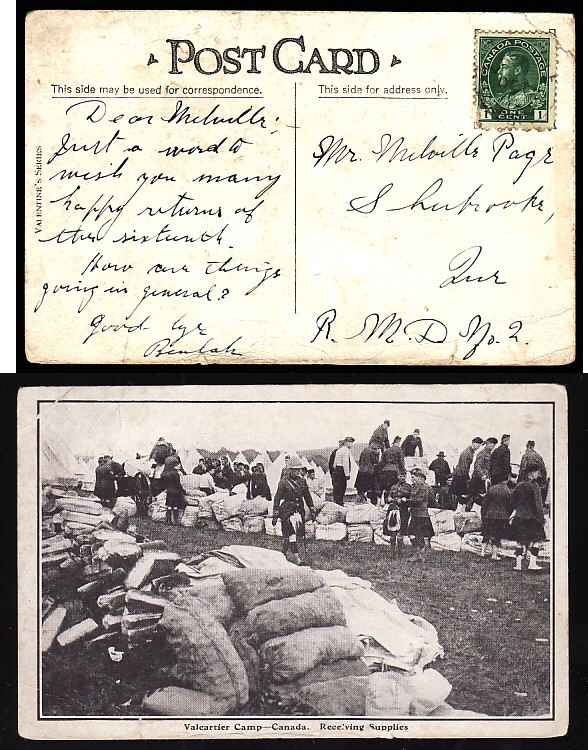 POST CARD
This side may be used for correspondence.
This side for address only.
CANADA POSTAGE
1 ONE CENT 1
VALENTINE'S SERIES
Dear Melville;-
Just a word to
wish you many
happy returns of
the sixteenth.
How are things
going in general?
Good bye
Beulah
Mr. Melville Page
Sherbrooke,
Que
R. M. D No. 2.
Valcartier Camp—Canada. Receiving Supplies